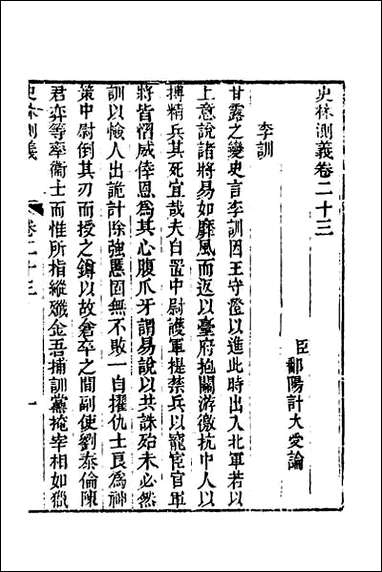 史林測義卷二十三
臣鄱陽計大受論
李訓
甘露之變史言李訓因王守澄以進此時出入北軍若以
上意說諸將易如靡風而返以臺府抱關游徼抗中人以
搏精兵其死宜哉夫自置中尉護軍提禁兵以寵宦官軍
將皆慴威倖恩為其心腹爪牙謂易說以共誅殆未必然
訓以憸人出詭計除強慝固無不敗一自擢仇士良為神
策中尉倒其刃而授之鐏以故倉卒之間副使劉泰倫陳
君弈等率衛士而惟所指縱殲金吾捕訓黨掩宰相如獵
史林測義
卷二十三
一